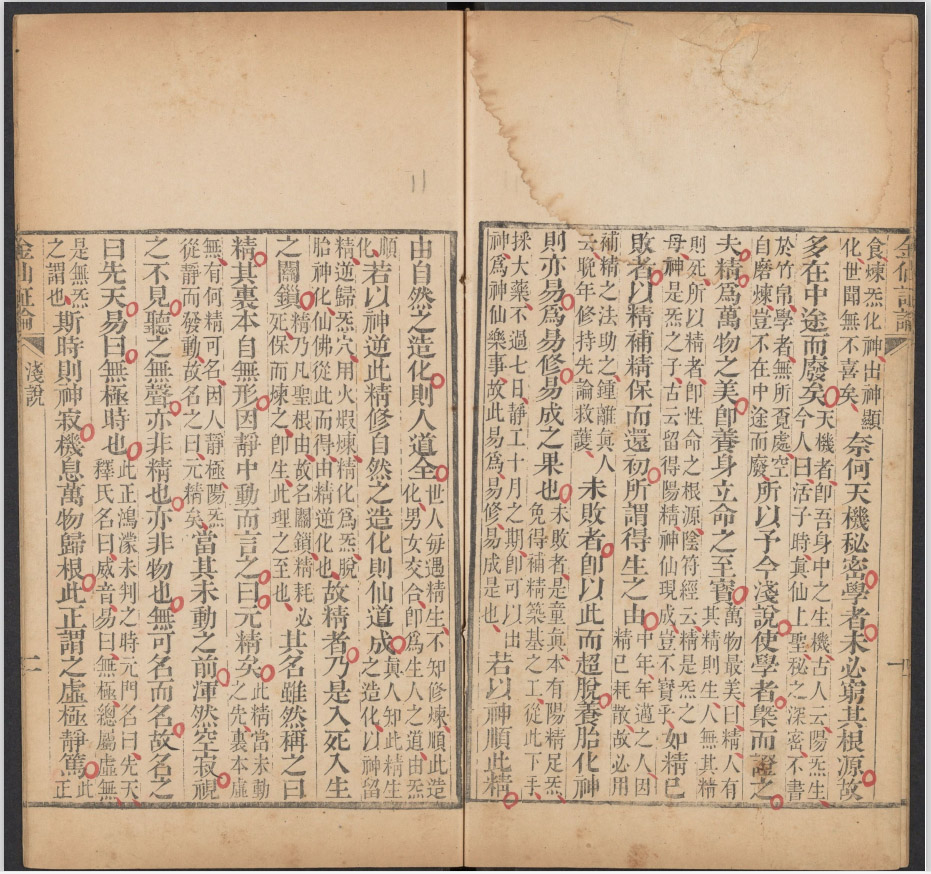 金仙證論
一
食煉炁化神出神顯
化世聞無不喜矣
奈何天機秘密學者未必窮其根源故
多在中途而廢矣
天機者卽吾身中之生機古人云陽炁生
今人曰活子時眞仙上聖秘之深密不書
於竹帛學者無所覓處空
自磨煉豈不在中途而廢
所以予今淺說使學者槩而證之
夫精爲萬物之美卽養身立命之至寶
萬物最美曰精人有
其精則生人無其精
則死所以精者卽性命之根源陰符經云精是炁之
母神是炁之子古云留得陽精神仙現成豈不寶乎
如精已
敗者以精補精保而還初所謂得生之由
中年年邁之人因
精已耗散故必用
補精之法助之鍾離眞人
云晩年修持先論救護
未敗者卽以此而超脫養胎化神
則亦易爲易修易成之果也
未敗者是童眞本有陽精足炁
免得補精築基之工從此下手
採大藥不過七日靜工十月之期卽可以出
神爲神仙樂事故此易爲易修易成是也
若以神順此精
由自然之造化則人道全
世人每遇精生不知修煉順此造
化男女交合卽爲生人之道由炁
順
化
若以神逆此精修自然之造化則仙道成
眞人知此精生
之造化以神留
精逆歸炁穴用火煆煉精化爲炁脫
胎神化仙佛從此而得由精逆化也
故精者乃是入死入生
之關鎖
精乃凡聖根由故名關鎖精耗必
死保而煉之卽生此理之至也
其名雖然稱之曰
精其裏本自無形因靜中動而言之曰元精矣
此精當未動
之先裏本虛
無有何精可名因人靜極陽炁
從靜而發動故名之曰元精矣
當其未動之前渾然空寂視
之不見聽之無聲亦非精也亦非物也無可名而名故名之
曰先天易曰無極時也
此正鴻濛未判之時元門名曰先天
釋氏名曰威音易曰無極總屬虛無
是無炁
之謂也
斯時則神寂機息萬物歸根此正謂之虛極靜篤
此
正
金仙證論
淺說
二